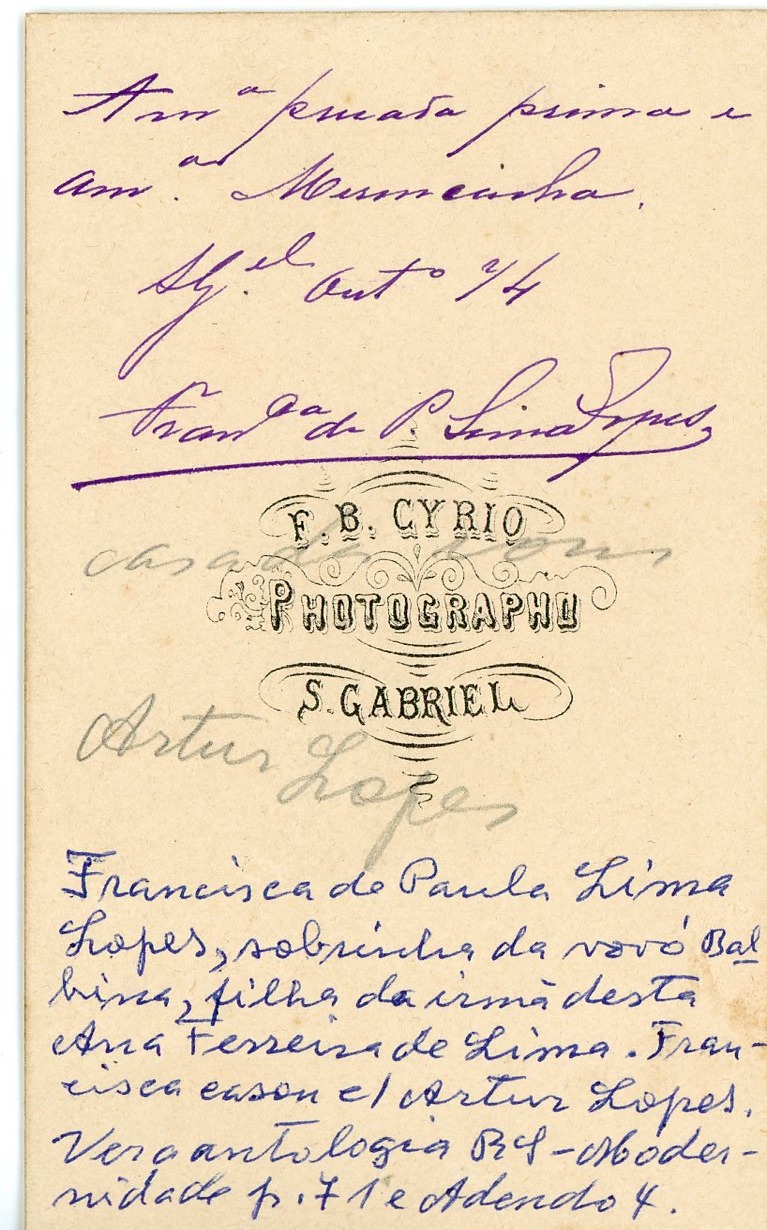 A mª prezada prima e
amª. Mimosinha.
S. G.el Outº 94
Franca de P. Lima Lopes
F. B. CYRIO
casada com
PHOTOGRAPHO
S. GABRIEL
Artur
Lopes
Francisca de Paula Lima
Lopes, sobrinha da vovó Bal
bina, filha da irmã desta
Ana Ferreira de Lima. Fran-
cisca casou c/ Artur Lopes.
Ver antologia RS - Moder-
nidade p. 71 e Adendo 4.